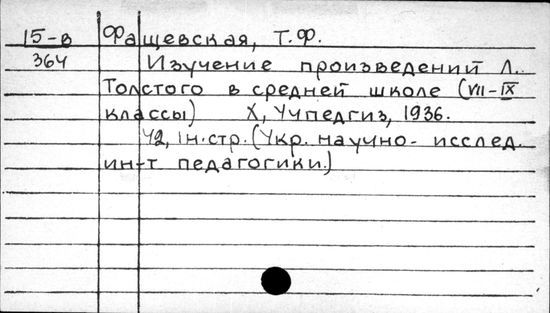 15-в Фащевская, Т.Ф.
364 Изучение произведений Л.
Толстого в средней школе (VII-IX
классы) Х, Учпедгиз, 1936.
42, Iн.стр. (Укр. научно-исслед.
ин-т педагогики.)